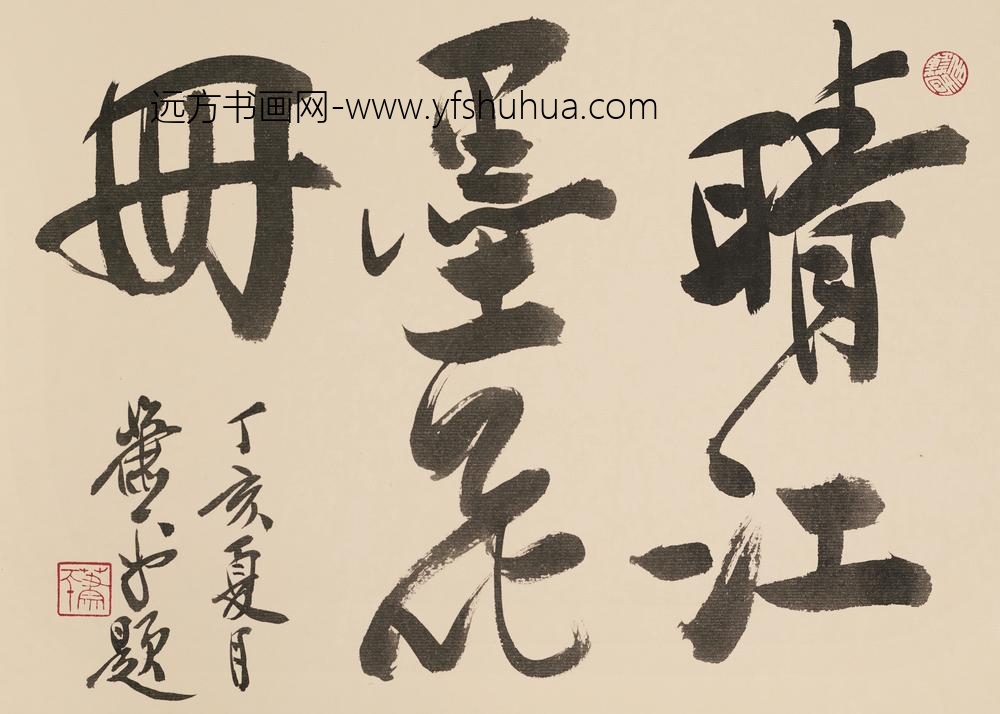 远方书画网-www.yfshuhua.com
晴江
墨花
冊
丁亥夏月
蕭平題